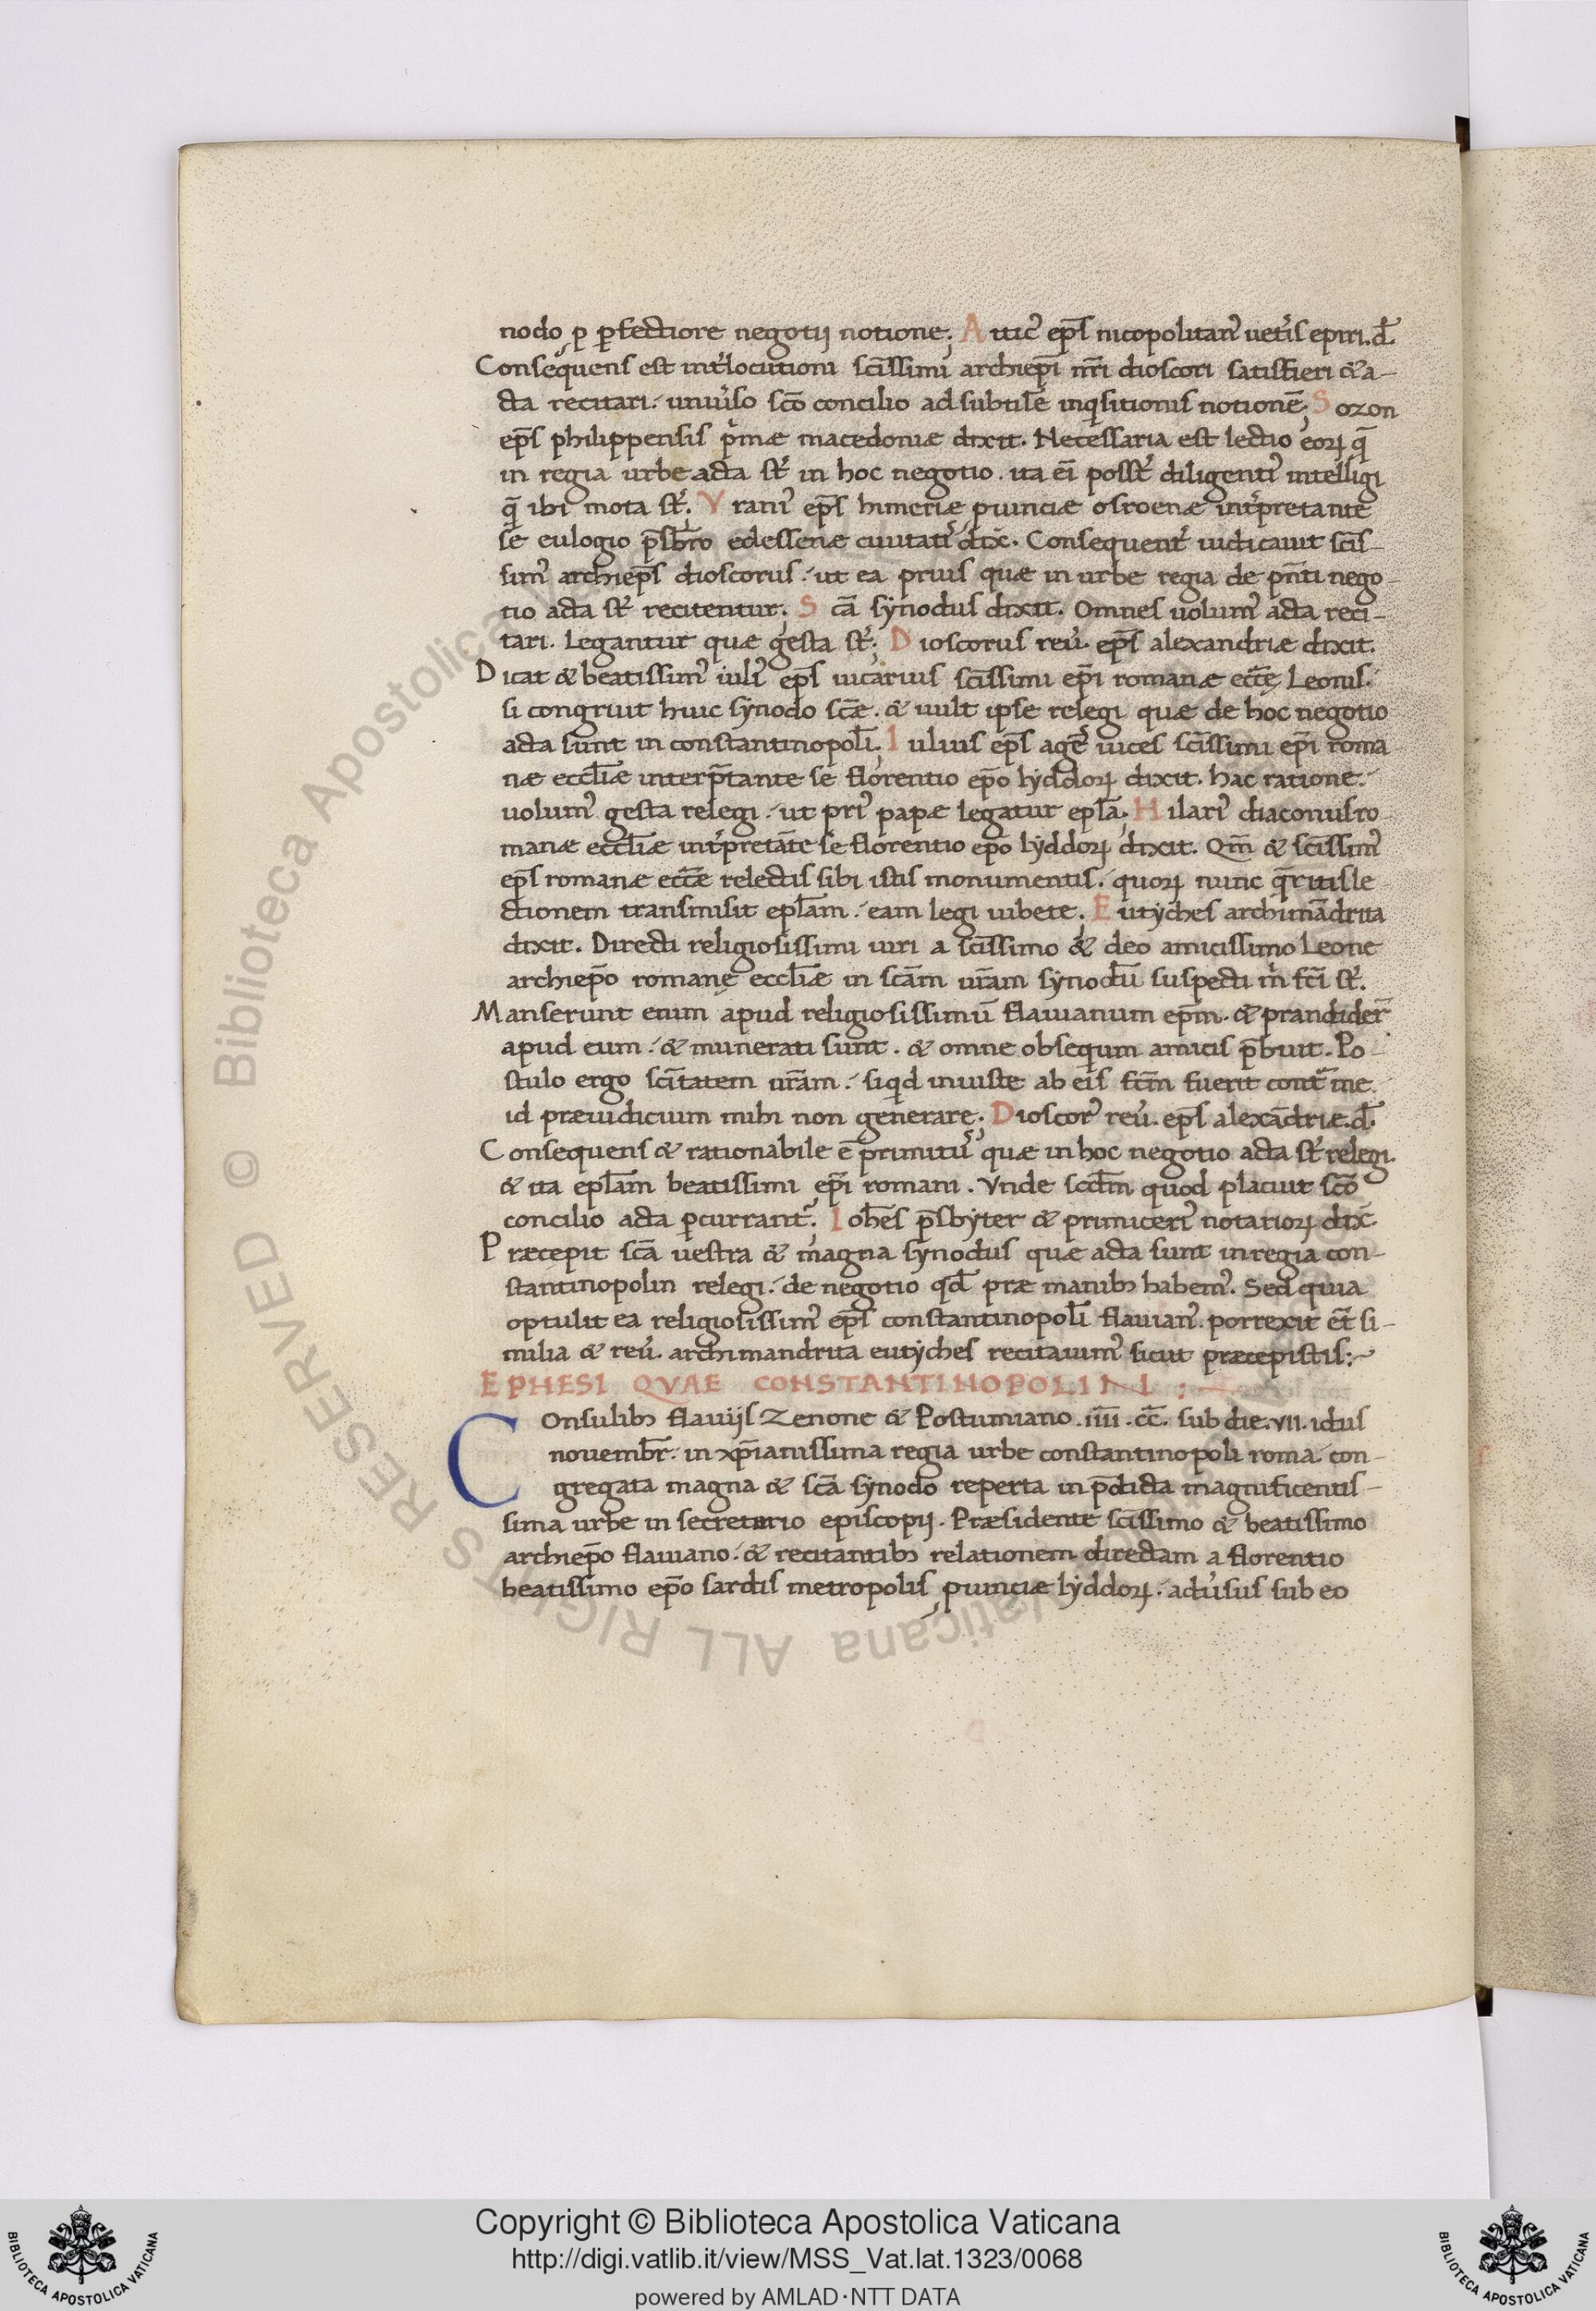 nodo ꝓ ꝑfectiore negotij notione; Atticꝰ ep̅s nicopolitanꝰ uet̓is epiri. d̅.
Consequens est int̓locutioni sc̅issimi archiep̅i nr̅i dioscori satisfieri & a-
cta recitari. uniu̓so sc̅o concilio ad subtile̅ inqͥsitionis notione̅; Sozon
ep̅s philippensis pͥmæ macedoniæ dixit. Necessaria est lectio eoꝝ q̅
in regia urbe acta st̓. in hoc negotio. ita ei̅ posst̓ diligent̓ intelligi
q̅ ibi mota st̓; Vraniꝰ ep̅s himeriæ ꝓuinciæ osroenæ int̓pretante
se eulogio p̅sb̅ro edessenæ ciuitatis dix̅. Consequent̓ iudicauit sc̅is-
simꝰ archiep̅s dioscorus. ut ea prius quæ in urbe regia de pn̅ti nego-
tio acta st̓ recitentur; Sc̅a synodus dixit. Omnes uolumꝰ acta reci-
tari. Legantur quæ gesta st̓; Dioscorus reu̓. ep̅s alexandriæ dixit.
Dicat & beatissimꝰ iuliꝰ ep̅s uicarius sc̅issimi ep̅i romanæ ecc̅e̜ Leonis.
si congruit huic synodo sc̅æ. & uult ipse relegi quæ de hoc negotio
acta sunt in constantinopoli̅; Iulius ep̅s age̅s uices sc̅issimi ep̅i roma-
næ eccl̅iæ interp̅tante se florentio ep̅o lyddoꝝ dixit. hac ratione.
uolumꝰ gesta relegi. ut priꝰ papæ legatur epl̅a; Hilarꝰ diaconus ro-
manæ eccl̅iæ int̓preta̅te se florentio ep̅o lyddoꝝ dixit. Qm̅ & sc̅issimꝰ
ep̅s romanæ ecc̅æ relectis sibi istis monumentis. quoꝝ nunc q̅ritis le
ctionem transmisit epl̅am. eam legi iubete; Eutyches archima̅drita
dixit. Directi religiosissimi uiri a sc̅issimo & deo amicissimo Leone
archiep̅o romane̜ eccl̅iæ in sc̅am ur̅am synodu̅ suspecti mͥ fc̅i st̓.
Manserunt enim apud religiosissimu̅ flauianum ep̅m. & prandider̅
apud eum. & munerati sunt. & omne obsequium amicis p̅buit. Po-
stulo ergo sc̅itatem ur̅am. siqͥd iniuste ab eis fc̅m fuerit contᷓ me.
id præiudicium mihi non generare; Dioscorꝰ reu̓. ep̅s alexa̅driæ. d̅.
Consequens & rationabile e̅ primitus quæ in hoc negotio acta st̓ relegi.
& ita epl̅am beatissimi ep̅i romani. Vnde scd̅m quod placuit sc̅o
concilio acta ꝑcurrant̓; Ioh̅es p̅sbyter & primiceriꝰ notarioꝝ dix̅.
Præcepit sc̅a uestra & magna synodus quæ acta sunt in regia con-
stantinopolin relegi. de negotio qd̅ præ manibꝫ habemꝰ. Sed quia
optulit ea religiosissimꝰ ep̅s constantinopoli̅ flauianꝰ. porrexit et̅ si-
milia & reu̓. archimandrita eutyches recitauimꝰ sicut præcepistis:~
EPHESI QVAE CONSTANTINOPOLINI :~
Consulibꝫ flauijs Zenone & Postumiano. iiii. cc̅. sub die. vii. idus
novembr̅. in xp̅ianissima regia urbe constantinopoli roma. con-
gregata magna & sc̅a synodo reperta in p̅dicta magnificentis-
sima urbe in secretario episcopij. Præsidente sc̅issimo & beatissimo
archiep̅o flauiano. & recitantibꝫ relationem directam a florentio
beatissimo ep̅o sardis metropolis ꝓuinciæ lyddoꝝ. adu̓sus sub eo
Biblioteca Apostolica Vaticana ALL RIGHTS RESERVED ©
Copyright © Biblioteca Apostolica Vaticana
http://digi.vatlib.it/view/MSS_Vat.lat.1323/0068
powered by AMLAD·NTT DATA
BIBLIOTECA APOSTOLICA VATICANA
BIBLIOTECA APOSTOLICA VATICANA